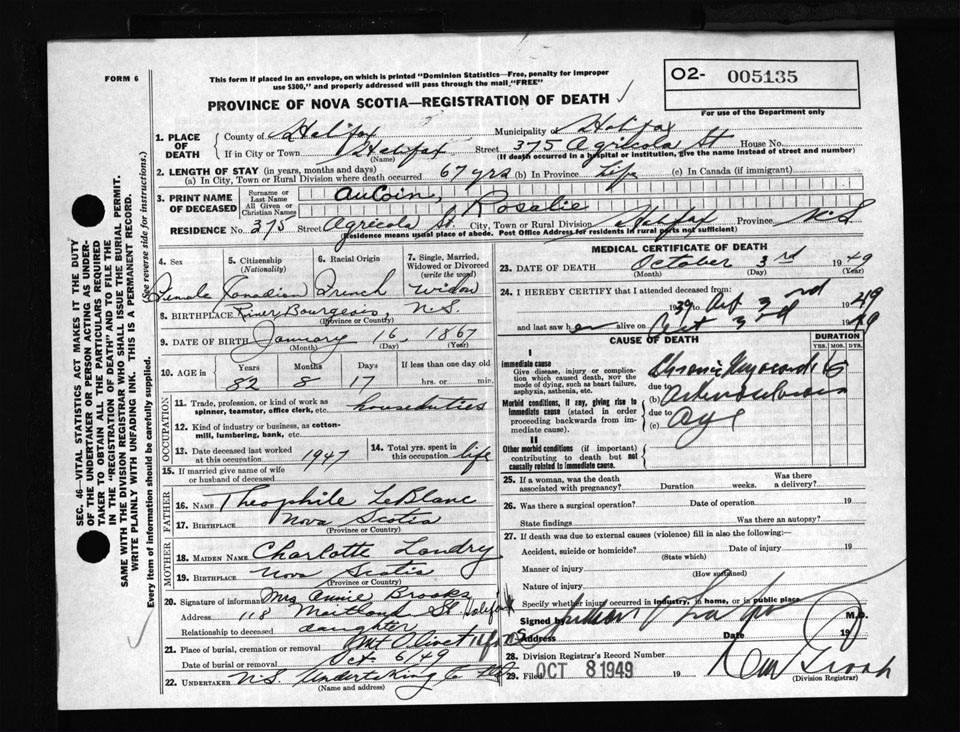 FORM 6
This form if placed in an envelope, on which is printed "Dominion Statistics—Free, penalty for improper
use $300," and properly addressed will pass through the mail "FREE"
PROVINCE OF NOVA SCOTIA—REGISTRATION OF DEATH
O2- 005135
For use of the Department only
1. PLACE OF DEATH
County of Halifax Municipality of Halifax
If in City or Town Halifax Street 375 Agricola St House No.
(Name) (If death occurred in a hospital or institution, give the name instead of street and number)
2. LENGTH OF STAY (in years, months and days)
(a) In City, Town or Rural Division where death occurred 67 yrs (b) In Province Life (c) In Canada (if immigrant)
3. PRINT NAME OF DECEASED
Surname or Last Name AuCoin,
All Given or Christian Names Rosalie
RESIDENCE No. 375 Street Agricola St. City, Town or Rural Division Halifax Province N.S.
(Residence means usual place of abode. Post Office Address for residents in rural parts not sufficient)
4. Sex
5. Citizenship (Nationality)
6. Racial Origin
7. Single, Married, Widowed or Divorced (write the word)
Female Canadian French Widow
8. BIRTHPLACE River Bourgeois, N.S.
(Province or Country)
9. DATE OF BIRTH January 16, 1867
(Month) (Day) (Year)
10. AGE in Years Months Days If less than one day old
82 8 17 hrs. or min.
OCCUPATION
11. Trade, profession, or kind of work as spinner, teamster, office clerk, etc. houseduties
12. Kind of industry or business, as cotton-mill, lumbering, bank, etc.
13. Date deceased last worked at this occupation 1947
14. Total yrs. spent in this occupation life
15. If married give name of wife or husband of deceased
FATHER
16. NAME Theophile LeBlanc
17. BIRTHPLACE Nova Scotia
(Province or Country)
MOTHER
18. MAIDEN NAME Charlotte Landry
19. BIRTHPLACE Nova Scotia
(Province or Country)
20. Signature of informant Mrs Annie Brooks
Address 118 Maitland St. Halifax
Relationship to deceased daughter
21. Place of burial, cremation or removal Mt Olivet Hfx N.S.
Date of burial or removal Oct 6/49
22. UNDERTAKER N.S. Undertaking Co Ltd
(Name and address)
MEDICAL CERTIFICATE OF DEATH
23. DATE OF DEATH October 3rd 1949
(Month) (Day) (Year)
24. I HEREBY CERTIFY that I attended deceased from:
1949
and last saw her alive on Oct 3rd 1949
CAUSE OF DEATH
DURATION
YRS. MOS. DYS.
I
Immediate cause
Give disease, injury or complication which caused death, not the mode of dying, such as heart failure, asphyxia, asthenia, etc.
(a) Chronic
due to
(b) Arteriosclerosis
Morbid conditions, if any, giving rise to immediate cause (stated in order proceeding backwards from immediate cause).
due to
(c) Age
II
Other morbid conditions (if important) contributing to death but not causally related to immediate cause.
25. If a woman, was the death associated with pregnancy? Duration weeks. Was there a delivery?
26. Was there a surgical operation? Date of operation 19
State findings Was there an autopsy?
27. If death was due to external causes (violence) fill in also the following:
Accident, suicide or homicide? Date of injury 19
(State which)
Manner of injury
(How sustained)
Nature of injury
Specify whether injury occurred in industry, in home, or in public place
Signed by M.D.
Address Date 19
28. Division Registrar's Record Number
29. Filed OCT 8 1949 19
(Division Registrar)
SEC. 46—VITAL STATISTICS ACT MAKES IT THE DUTY
OF THE UNDERTAKER OR PERSON ACTING AS UNDER-
TAKER TO OBTAIN ALL THE PARTICULARS REQUIRED
IN THE "REGISTRATION OF DEATH" AND TO FILE THE
SAME WITH THE DIVISION REGISTRAR WHO SHALL ISSUE THE BURIAL PERMIT.
WRITE PLAINLY WITH UNFADING INK. THIS IS A PERMANENT RECORD.
Every item of information should be carefully supplied. (See reverse side for instructions.)